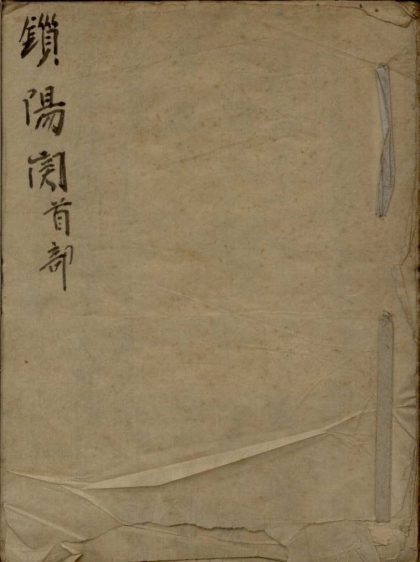 鎖陽関首部